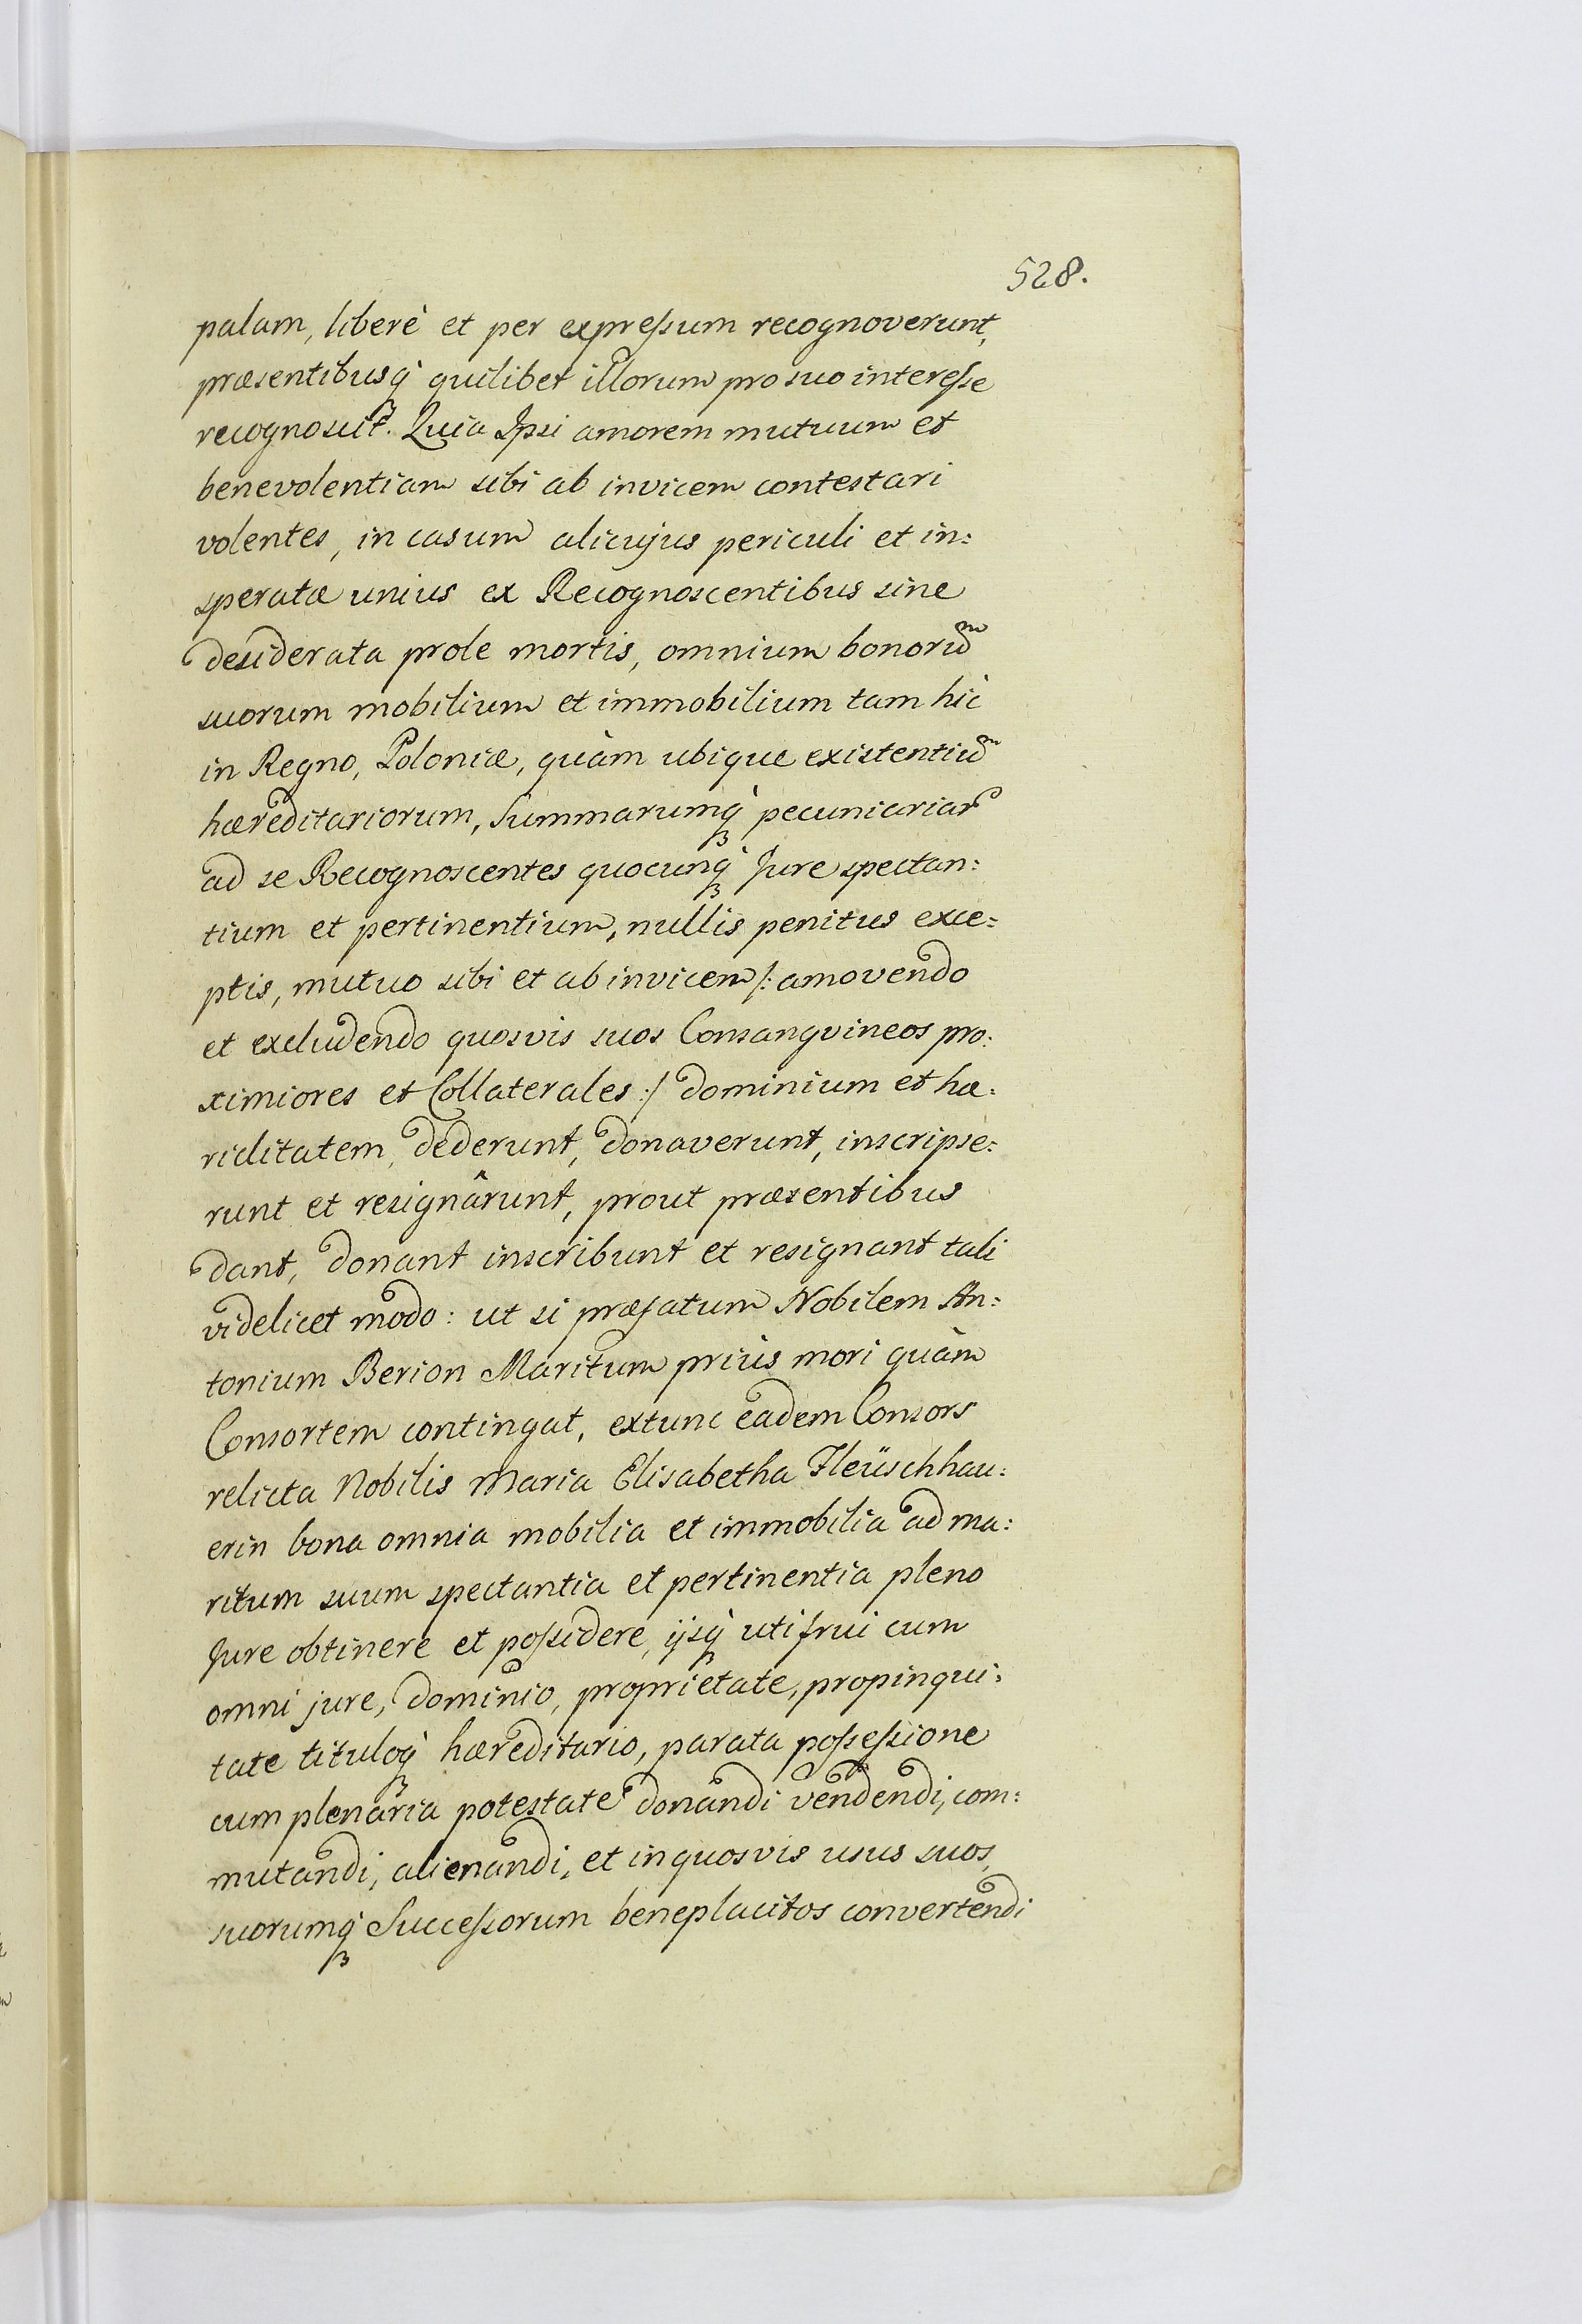 528.
palam, liberè et per expressum recognoverunt,
præsentibusq̀ꝫ quilibet illorum pro suo interesse
recognoscit. Quia Ipsi amorem mutuum et
benevolentiam sibi ab invicem contestari
volentes, in casum alicujus periculi et in:
speratæ unius ex Recognoscentibus sine
desiderata prole mortis, omnium bonorū
suorum mobilium et immobilium tam hìc
in Regno, Poloniæ, quàm ubique existentiū
hæreditariorum, Summarumq̀ꝫ pecuniariar
ad se Recognoscentes quocunq̀ꝫ Jure spectan:
tium et pertinentium, nullis penitus exce:
ptis, mutuo sibi et ab invicem /: amovendo
et excludendo quosvis suos Consangvineos pro:
ximiores et Collaterales :/ dominium et hæ:
riditatem, dederunt, donaverunt, inscripse:
runt et resignârunt, prout præsentibus
dant, donant inscribunt et resignant tali
videlicet modo: ut si præfatum Nobilem An:
tonium Berion Maritum priùs mori quàm
Consortem contingat, extunc eadem Consors
relicta Nobilis Maria Elisabetha Fleüschhau:
erin bona omnia mobilia et immobilia ad ma:
ritum suum spectantia et pertinentia pleno
Jure obtinere et possidere, ijsq̀ꝫ uti frui cum
omni jure, dominio, proprietate, propinqui:
tate tituloq̀ꝫ hæreditario, parata possessione
cum plenaria potestate donandi vendendi, com:
mutandi, alienandi, et in quosvis usus suos,
suorumq̀ꝫ Successorum beneplacitos convertendi